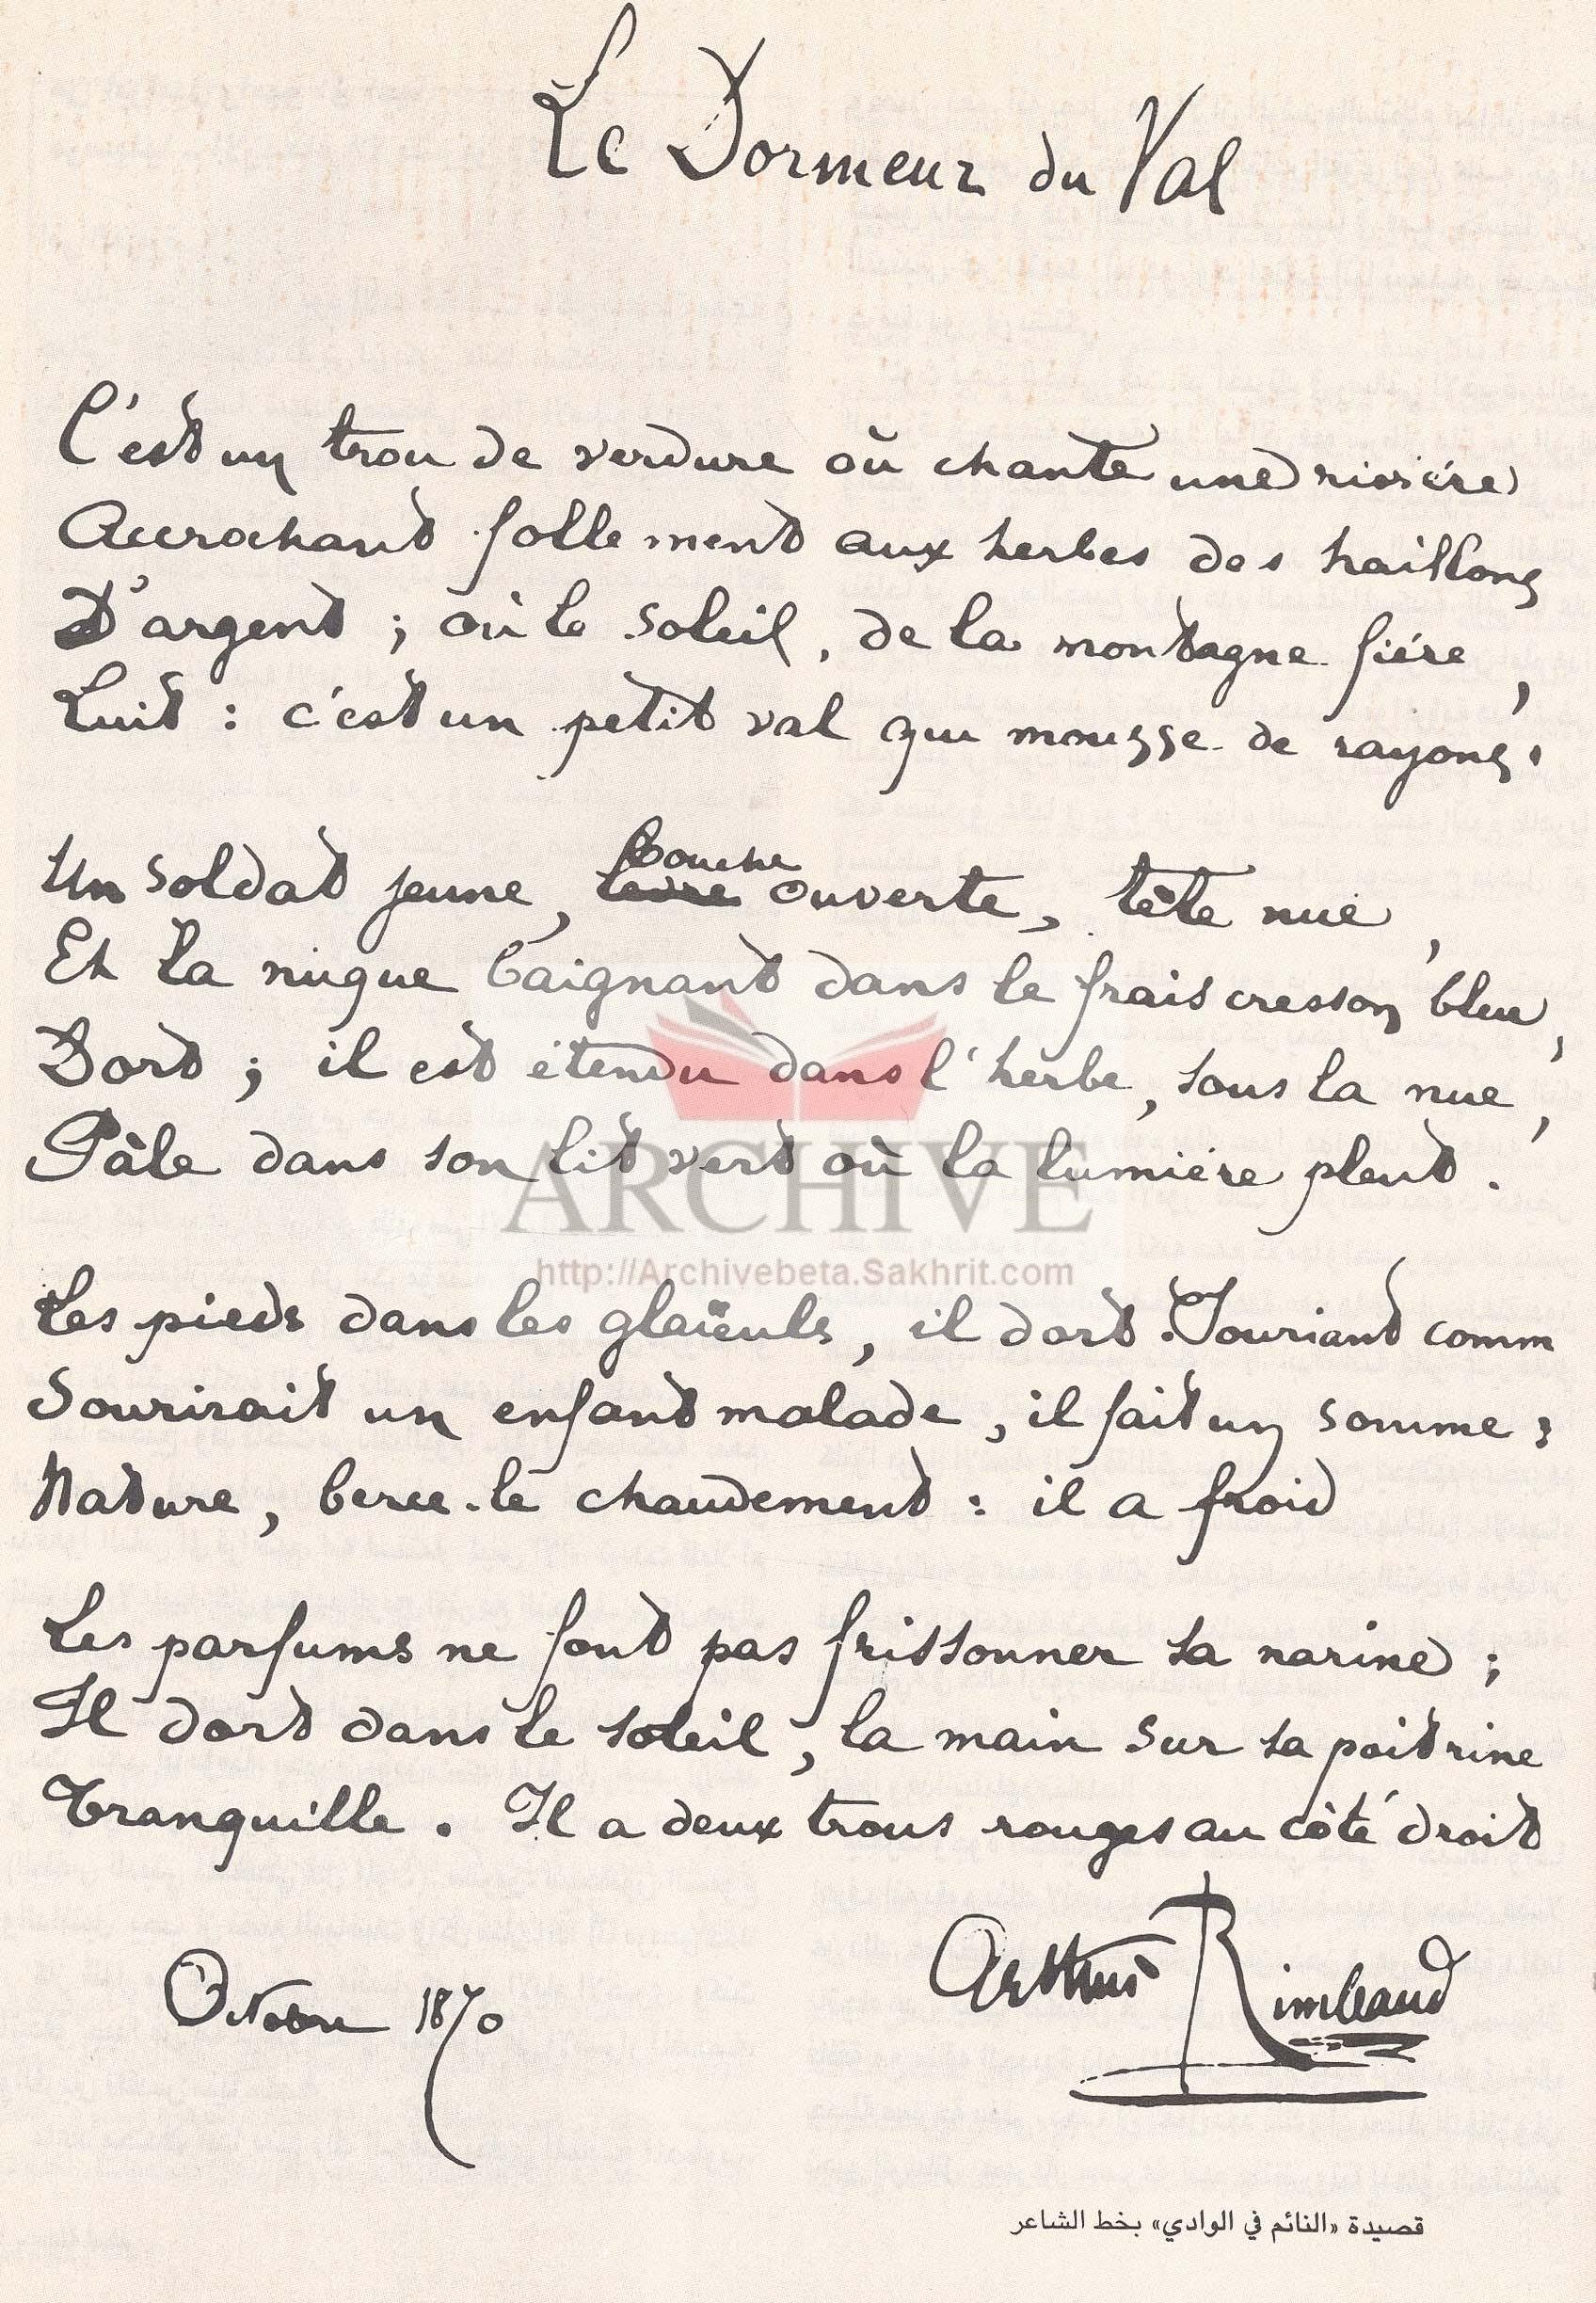 Le Dormeur du Val
C'est un trou de verdure où chante une rivière
Accrochant follement aux herbes des haillons
D'argent ; où le soleil, de la montagne fière,
Luit : c'est un petit val qui mousse de rayons.
Un soldat jeune, lèvre bouche ouverte, tête nue,
Et la nuque baignant dans le frais cresson bleu,
Dort ; il est étendu dans l'herbe, sous la nue,
Pâle dans son lit vert où la lumière pleut.
ARCHIVE
http://Archivebeta.Sakhrit.com
Les pieds dans les glaïeuls, il dort. Souriant comm
Sourirait un enfant malade, il fait un somme :
Nature, berce-le chaudement : il a froid
Les parfums ne font pas frissonner sa narine ;
Il dort dans le soleil, la main sur sa poitrine
Tranquille. Il a deux trous rouges au côté droit
Arthur Rimbaud
Octobre 1870
قصيدة «النائم في الوادي» بخط الشاعر